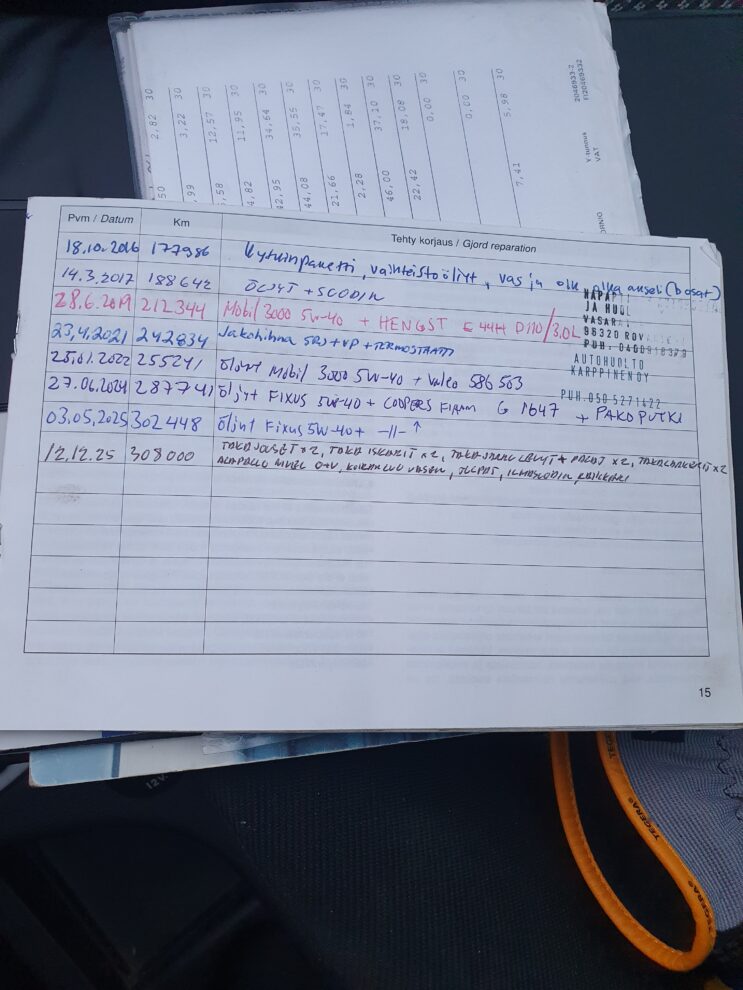 2,82 30
3,22 30
12,57 30
11,95 30
34,64 30
35,55 30
17,47 30
1,84 30
37,10 30
18,08 30
0,00 30
0,00 30
5,98 30
50
,99
,58
4,82
42,95
44,08
21,66
2,28
46,00
22,42
7,41
Y-tunnus 2046933-2
VAT FI20469332
Pvm / Datum Km Tehty korjaus / Gjord reparation
18.10.2016 177986 Kytkinpaketti, vaihteistoöljyt, vas ja oik alka akseli (bosat)
14.3.2017 188642 ÖLJYT + SUODIN
28.6.2019 212344 Mobil 3000 5W-40 + HENGST E 44H D110 /3.0L
23.4.2021 242834 Jakohihna SRJ + VP + TERMOSTAATTI
25.01.2022 255241 öljyt Mobil 3000 5W-40 + Valeo 586503
27.06.2024 287741 öljyt FIXUS 5W-40 + COOPERS FIAAM G 1647 + PAKOPUTKI
03.05.2025 302448 öljyt Fixus 5W-40+ -11- ↑
12.12.25 308000 TAKAJOUSET x2, TAKA ISKARIT x2, TAKAJARRU LEVYT + PALAT x2,
ALAPALLO NIVEL O+V, VASEN, ILMASUODIN,
JA HUOL
VASARA
96320 ROV
PUH. 0400918379
AUTOHUOLTO
KARPPINEN OY
PUH. 050 5271422
15
12V
TEGERA®
TEGERA®